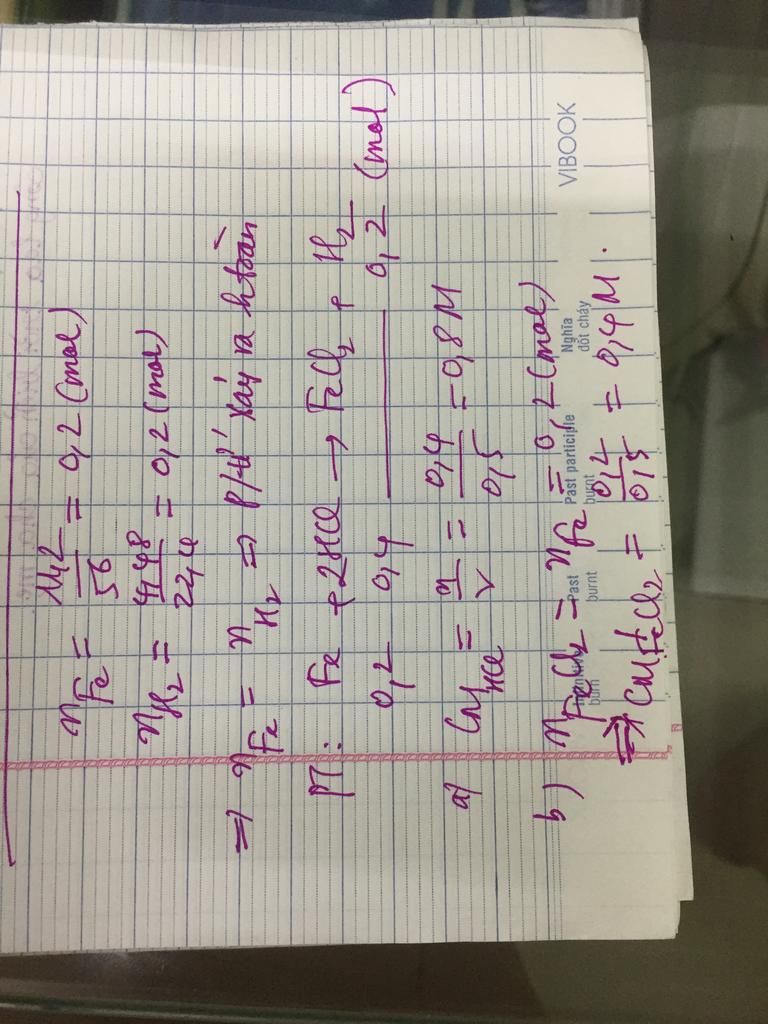 nFe = 11,2/56 = 0,2 (mol)
nH2 = 4,48/22,4 = 0,2 (mol)
=> nFe = nH2 => P/ứ xảy ra htoàn
PT: Fe + 2HCl → FeCl2 + H2
0,2 0,4 0,2 (mol)
a) CM HCl = n/V = 0,4/0,5 = 0,8M
b) nFeCl2 = nFe = 0,2 (mol)
=> CM FeCl2 = 0,2/0,5 = 0,4M.
burn
Past
burnt
Past participle
burnt
Nghĩa
đốt cháy
VIBOOK